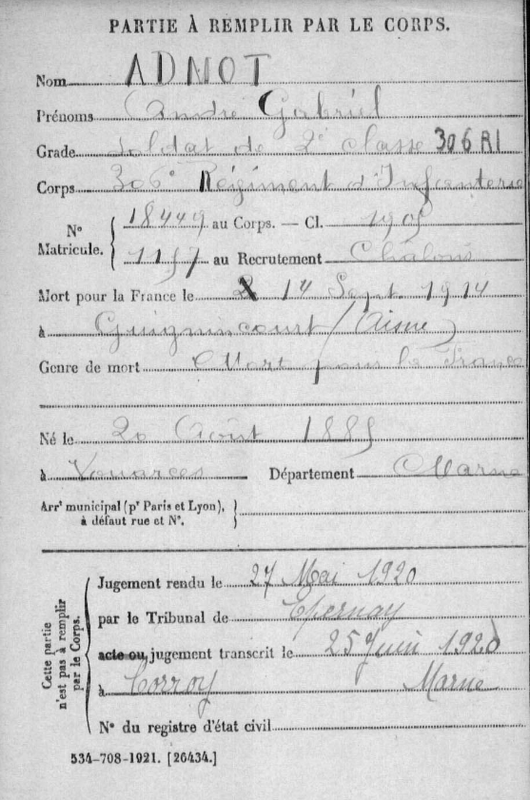 PARTIE À REMPLIR PAR LE CORPS.
Nom ADNOT
Prénoms André Gabriel
Grade Soldat de 2e classe 306 RI
Corps 306e Régiment d'Infanterie
N° Matricule. { 18449 au Corps. — Cl. 1905
1157 au Recrutement Châlons
Mort pour la France le 14 Sept. 1914
à Guignincourt (Aisne)
Genre de mort Mort pour la France
Né le 20 Août 1885
à Vouarces Département Marne
Arrt municipal (pr Paris et Lyon), à défaut rue et N°. }
Cette partie n'est pas à remplir par le Corps.
Jugement rendu le 27 Mai 1920
par le Tribunal de Epernay
acte ou jugement transcrit le 25 Juin 1920
à Corroy Marne
N° du registre d'état civil
534-708-1921. [26434.]